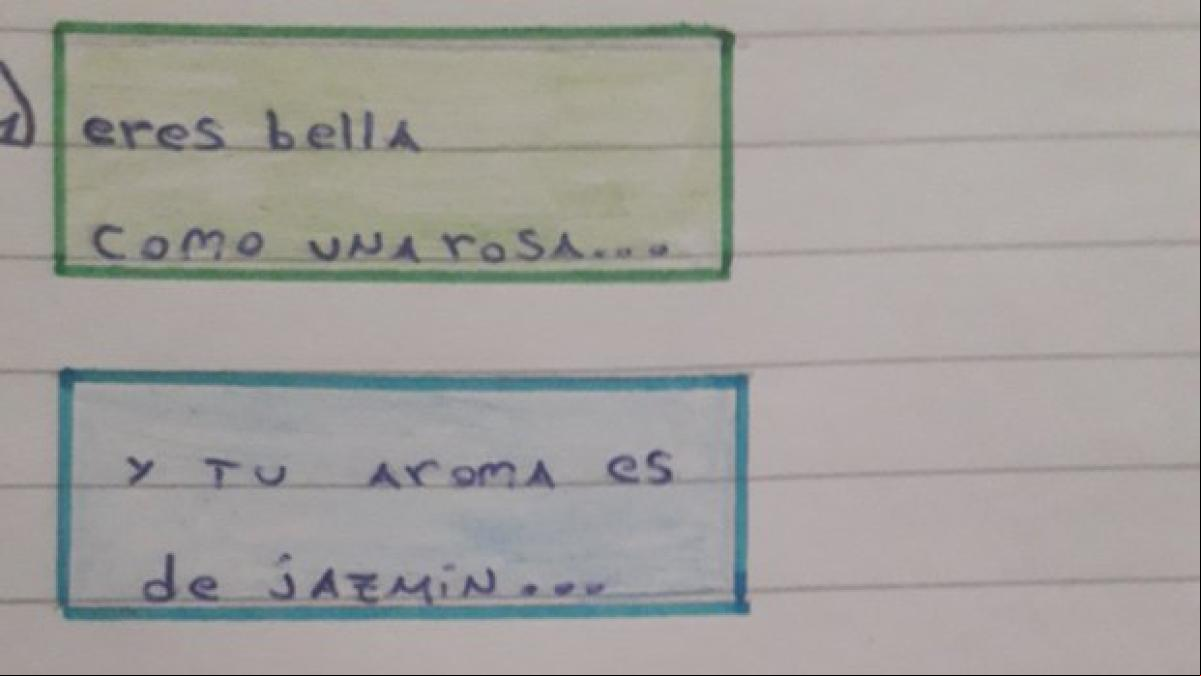 1) eres bella
como una rosa...
y tu aroma es
de jazmin...